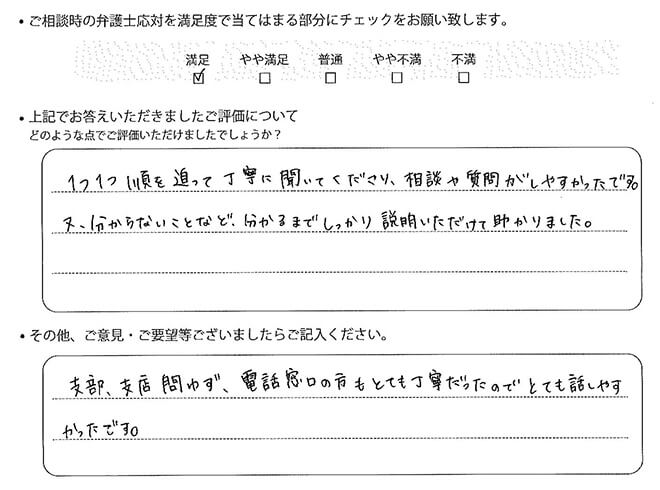 ・ご相談時の弁護士応対を満足度で当てはまる部分にチェックをお願い致します。
満足 やや満足 普通 やや不満 不満
☑ □ □ □ □
・上記でお答えいただきましたご評価について
どのような点でご評価いただけましたでしょうか?
1つ1つ順を追って丁寧に聞いてくださり、相談や質問がしやすかったです。
又、分からないことなど、分かるまでしっかり説明いただけて助かりました。
・その他、ご意見・ご要望等ございましたらご記入ください。
支部、支店問わず、電話窓口の方もとても丁寧だったのでとても話しやす
かったです。